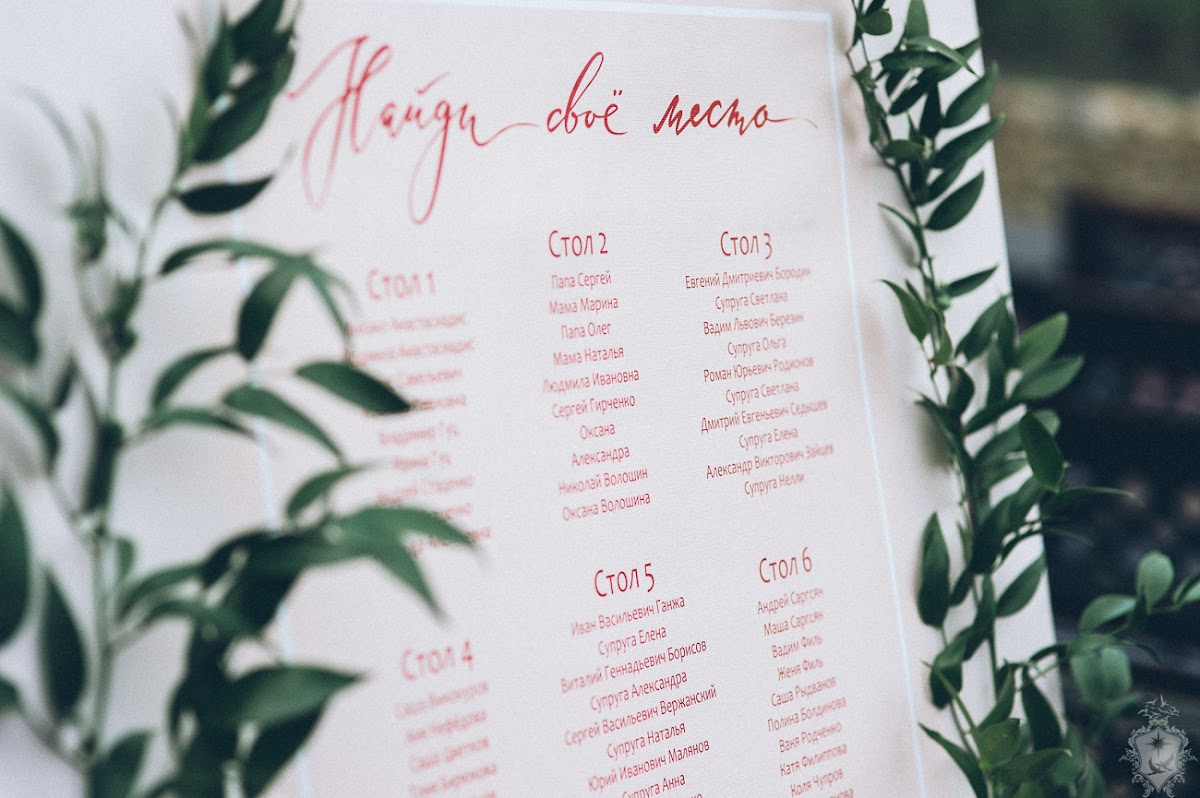 Найди своё место
Стол 1
Стол 2
Папа Сергей
Мама Марина
Папа Олег
Мама Наталья
Людмила Ивановна
Сергей Гирченко
Оксана
Александра
Николай Волошин
Оксана Волошина
Стол 3
Евгений Дмитриевич Бородин
Супруга Светлана
Вадим Львович Березин
Супруга Ольга
Роман Юрьевич Родионов
Супруга Светлана
Дмитрий Евгеньевич Седышев
Супруга Елена
Александр Викторович Зайцев
Супруга Нелли
Стол 4
Саша Винокуров
Аня Нефёдова
Саша Цветков
Стол 5
Иван Васильевич Ганжа
Супруга Елена
Виталий Геннадьевич Борисов
Супруга Александра
Сергей Васильевич Вержанский
Супруга Наталья
Юрий Иванович Малянов
Супруга Анна
Стол 6
Андрей Саргсян
Маша Саргсян
Вадим Филь
Женя Филь
Саша Рыдванов
Полина Болдинова
Ваня Родченко
Катя Филиппова
Коля Чупров